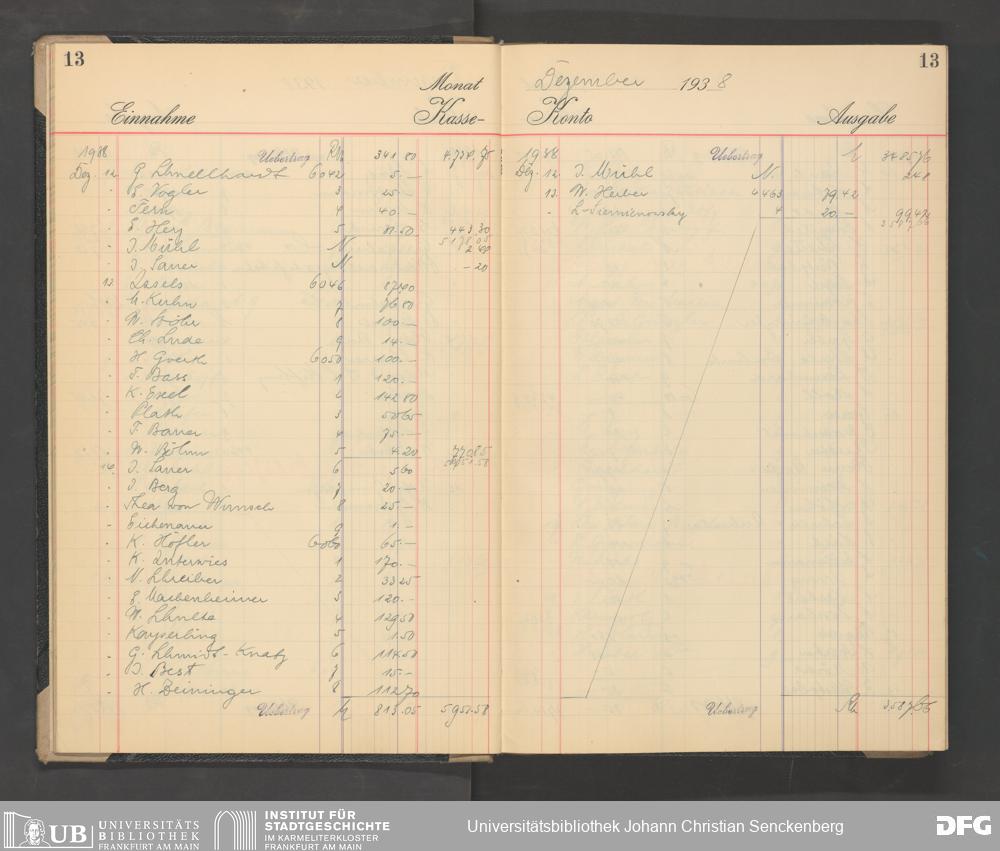 13
Monat
Einnahme Kasse-
1938 Uebertrag RM 341 80
Dez. 12. 6042 5.—
E. Vogler 3 25.—
Fern 4 40.—
E. Hey 5 443 30
J. Mühl N.
J. Sauer N. — 20
13. 6046
M. Kuhn 7 76 80
8 100.—
Ch. Lude 9 14.—
H. Goerth 6050 100.—
F. Bass 1 120.—
K. Exel 2 142 80
Plath 3 50 65
F. Bauer 4 75.—
W. Böhm 5 4.20 770 85
14. J. Sauer 6 5 60
J. Berg 7 20.—
Thea von Wunsch 8 25.—
Eichenauer 9 1.—
K. Höfler 6060 65.—
K. Unterwies 1 170.—
N. Schreiber 2 33 25
Machenheimer 3 120.—
W. Schulte 4 129 50
Kayserling 5 1.50
G. Schmidt-Knatz 6 114 50
J. Best 7 15.—
H. Deininger 8 112 70
Uebertrag 813.05 5951.58
13
Dezember 1938
Konto Ausgabe
1938 Uebertrag
Dez. 12. J. Mühl N. 2 41
13. W. Herber 4463 79 42
L. Siemienowsky 4 20.— 99 42
Uebertrag RM
UB UNIVERSITÄTS
BIBLIOTHEK
FRANKFURT AM MAIN
INSTITUT FÜR
STADTGESCHICHTE
IM KARMELITERKLOSTER
FRANKFURT AM MAIN
Universitätsbibliothek Johann Christian Senckenberg
DFG